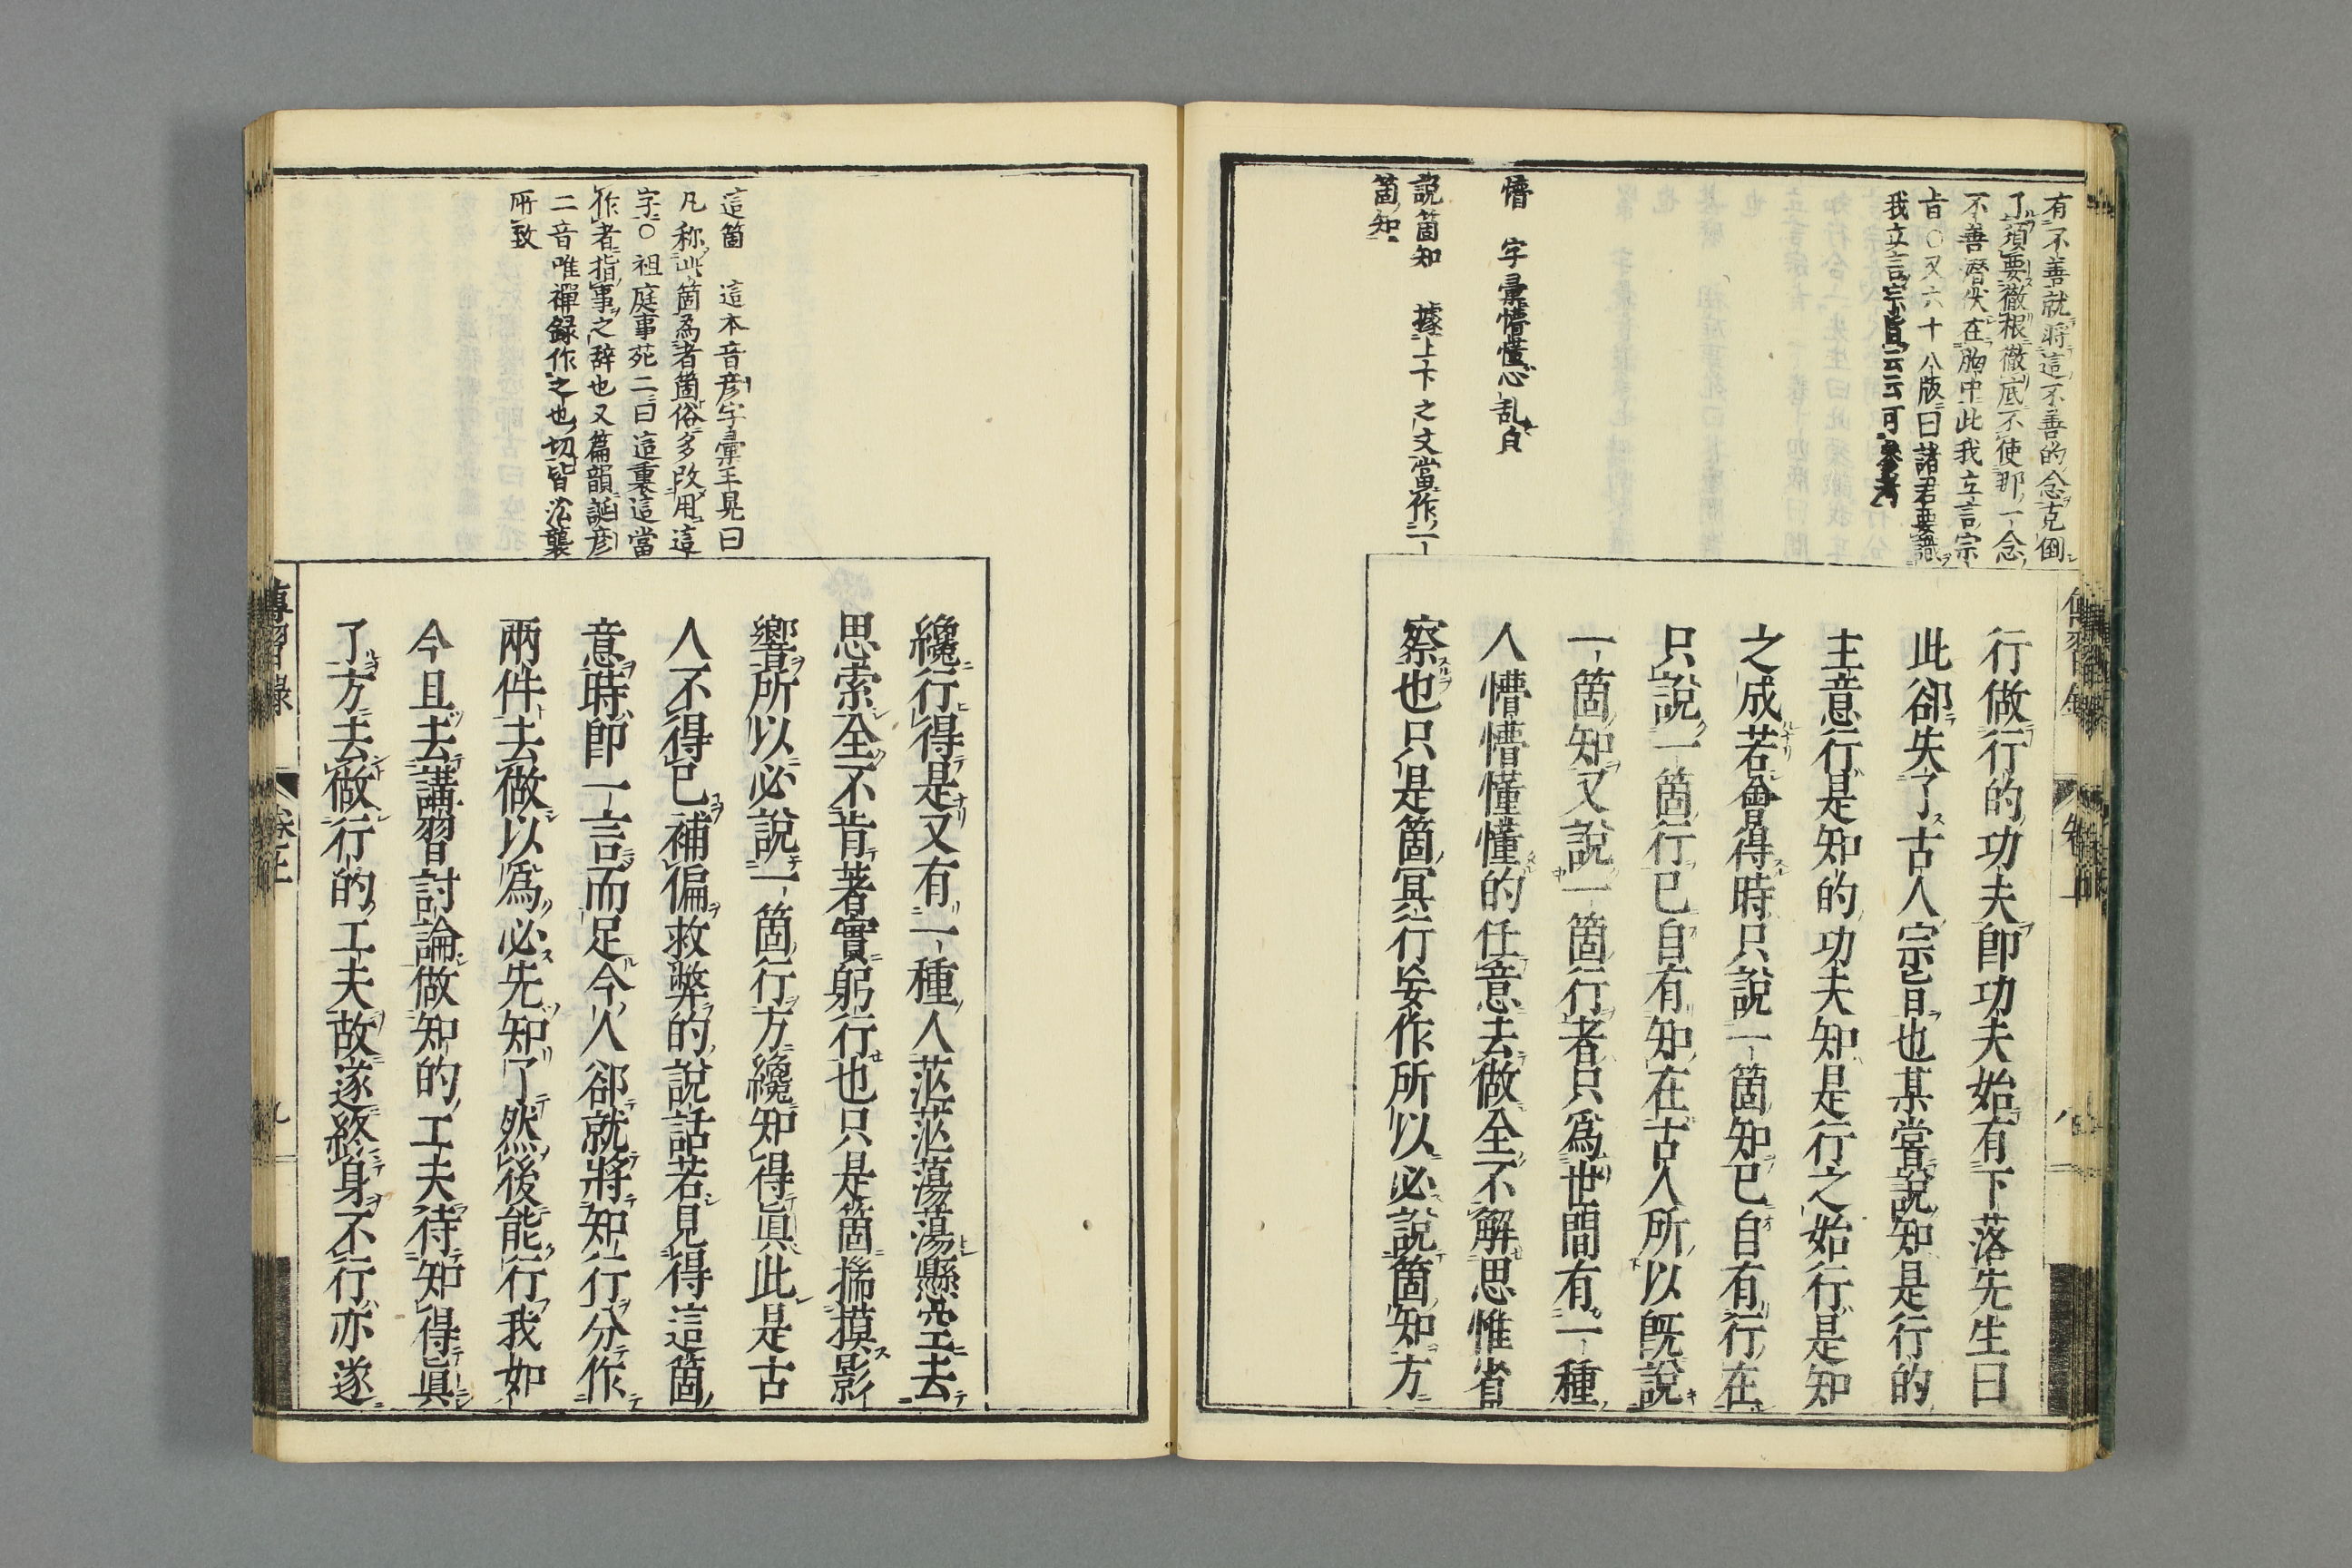 有不善就將這不善的念克倒
了須要徹根徹底不使那一念
不善潛伏在胸中此我立言宗
旨〇又六十八版曰諸君要識
我立言宗旨云云可參考
懵 字彙懵懂心乱皃
說箇知 據上下之文當作一
箇知
行做行的功夫即功夫始有下落先生曰
此卻失了古人宗旨也某嘗說知是行的
主意行是知的功夫知是行之始行是知
之成若會得時只說一箇知已自有行在
只說一箇行已自有知在古人所以既說
一箇知又說一箇行者只爲世間有一種
人懵懵懂懂的任意去做全不解思惟省
察也只是箇冥行妄作所以必說箇知方
這箇 這本音彦字彙毛晃曰
凡称此箇爲者箇俗多改用這
字〇祖庭事苑二曰這裏這當
作者指事之辞也又篇韻誕彦
二音唯禪録作之也切皆沿襲
所致
纔行得是又有一種人茫茫蕩蕩懸空去
思索全不肯著實躬行也只是箇揣摸影
響所以必說一箇行方纔知得眞此是古
人不得已補偏救弊的說話若見得這箇
意時即一言而足今人卻就將知行分作
兩件去做以爲必先知了然後能行我如
今且去講習討論做知的工夫待知得眞
了方去做行的工夫故遂終身不行亦遂
傳習錄 卷上 九